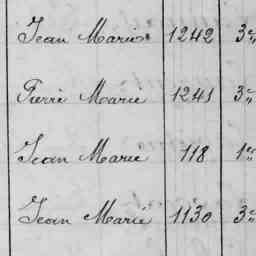 Jean Marie 1242 3e
Pierre Marie 1241 3e
Jean Marie 118 1e
Jean Marie 1130 3e